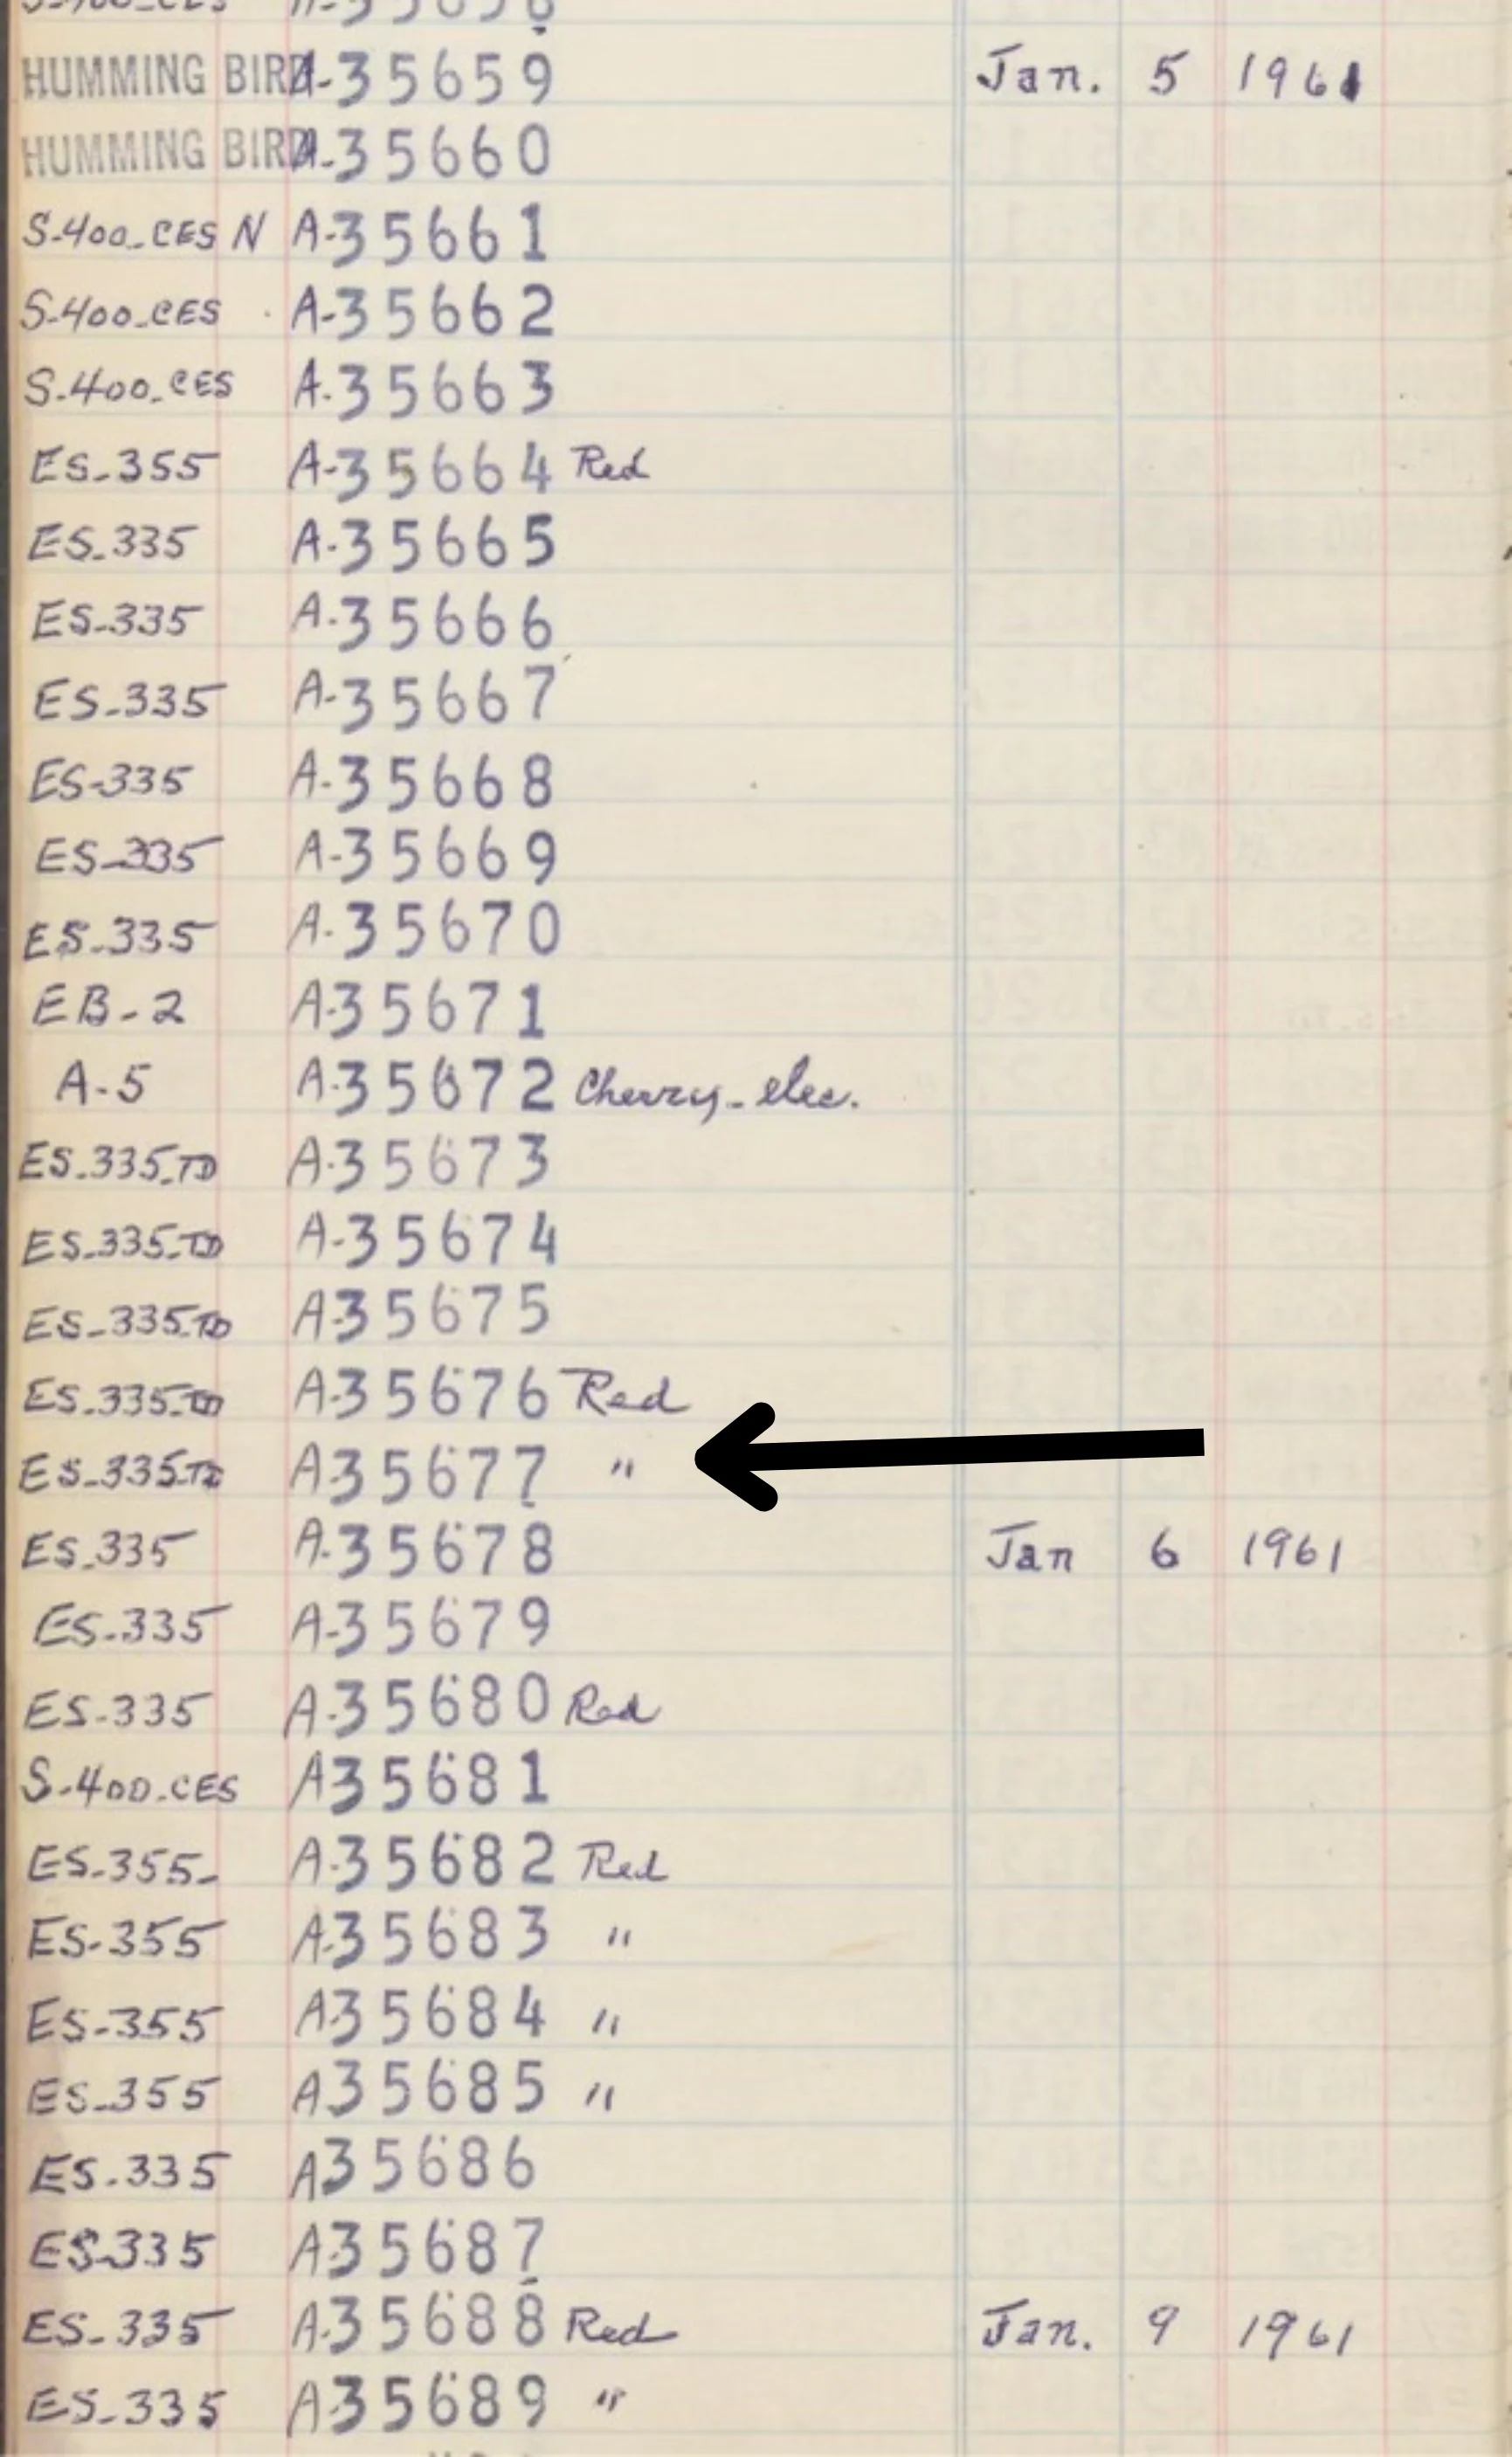 HUMMING BIRD A-35659 Jan. 5 1961
HUMMING BIRD A-35660
S-400-CES N A-35661
S-400-CES A-35662
S-400-CES A-35663
ES-355 A-35664 Red
ES-335 A-35665
ES-335 A-35666
ES-335 A-35667
ES-335 A-35668
ES-335 A-35669
ES-335 A-35670
EB-2 A-35671
A-5 A-35672 Cherry-elec.
ES-335-TD A-35673
ES-335-TD A-35674
ES-335-TD A35675
ES-335-TD A-35676 Red
ES-335-TD A35677 "
ES-335 A-35678 Jan 6 1961
ES-335 A-35679
ES-335 A-35680 Red
S-400-CES A35681
ES-355- A-35682 Red
ES-355 A-35683 "
ES-355 A35684 "
ES-355 A35685 "
ES-335 A35686
ES-335 A35687
ES-335 A-35688 Red Jan. 9 1961
ES-335 A35689 "